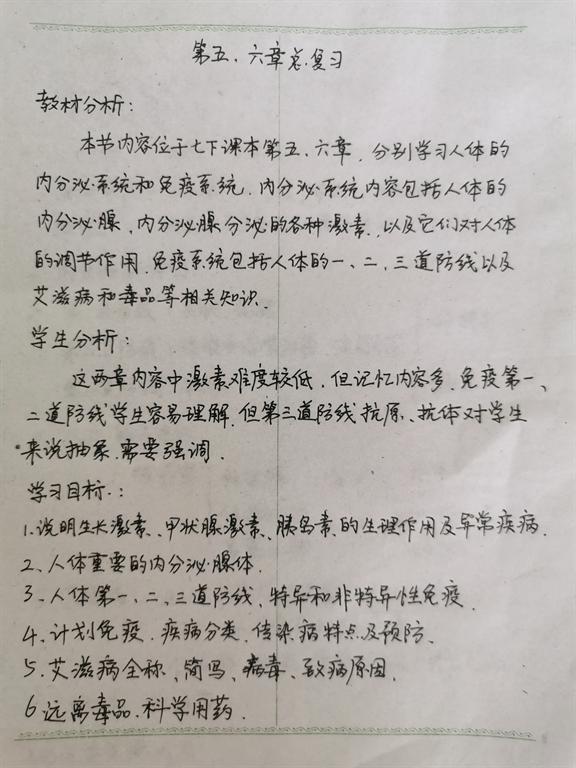 第五、六章总复习
教材分析:
本节内容位于七下课本第五、六章,分别学习人体的
内分泌系统和免疫系统,内分泌系统内容包括人体的
内分泌腺,内分泌腺分泌的各种激素,以及它们对人体
的调节作用,免疫系统包括人体的一、二、三道防线以及
艾滋病和毒品等相关知识.
学生分析:
这两章内容中激素难度较低,但记忆内容多,免疫第一、
二道防线学生容易理解,但第三道防线抗原、抗体对学生
来说抽象,需要强调.
学习目标:
1.说明生长激素、甲状腺激素、胰岛素的生理作用及异常疾病.
2、人体重要的内分泌腺体.
3、人体第一、二、三道防线,特异和非特异性免疫.
4、计划免疫.疾病分类,传染病特点及预防.
5.艾滋病全称、简写、病毒、致病原因.
6.远离毒品.科学用药.